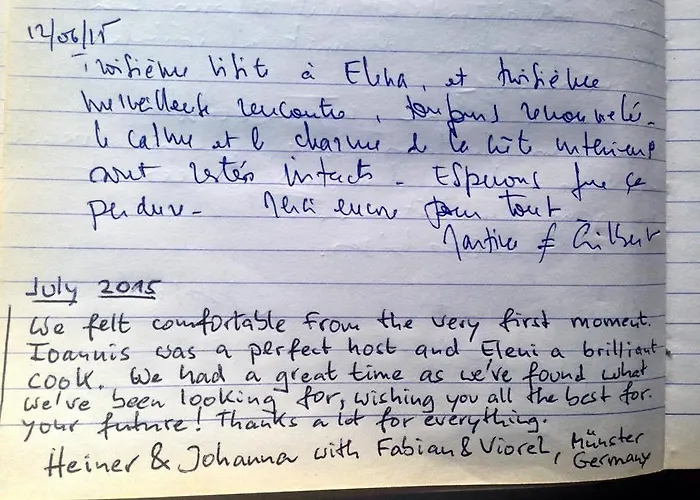 12/06/15
Troisième visit à Elena, et troisième
merveilleuse rencontre, toujours renouvelé.
le calme et le charme de le intérieurs
sont restés intacts - Espérons que ça
perdure - Merci encore pour tout
Martine & Gilbert
July 2015
We felt comfortable from the very first moment.
Ioannis was a perfect host and Eleni a brilliant
cook. We had a great time as we've found what
we've been looking for, wishing you all the best for
your future! Thanks a lot for everything.
Heiner & Johanna with Fabian & Viorel, Münster
Germany